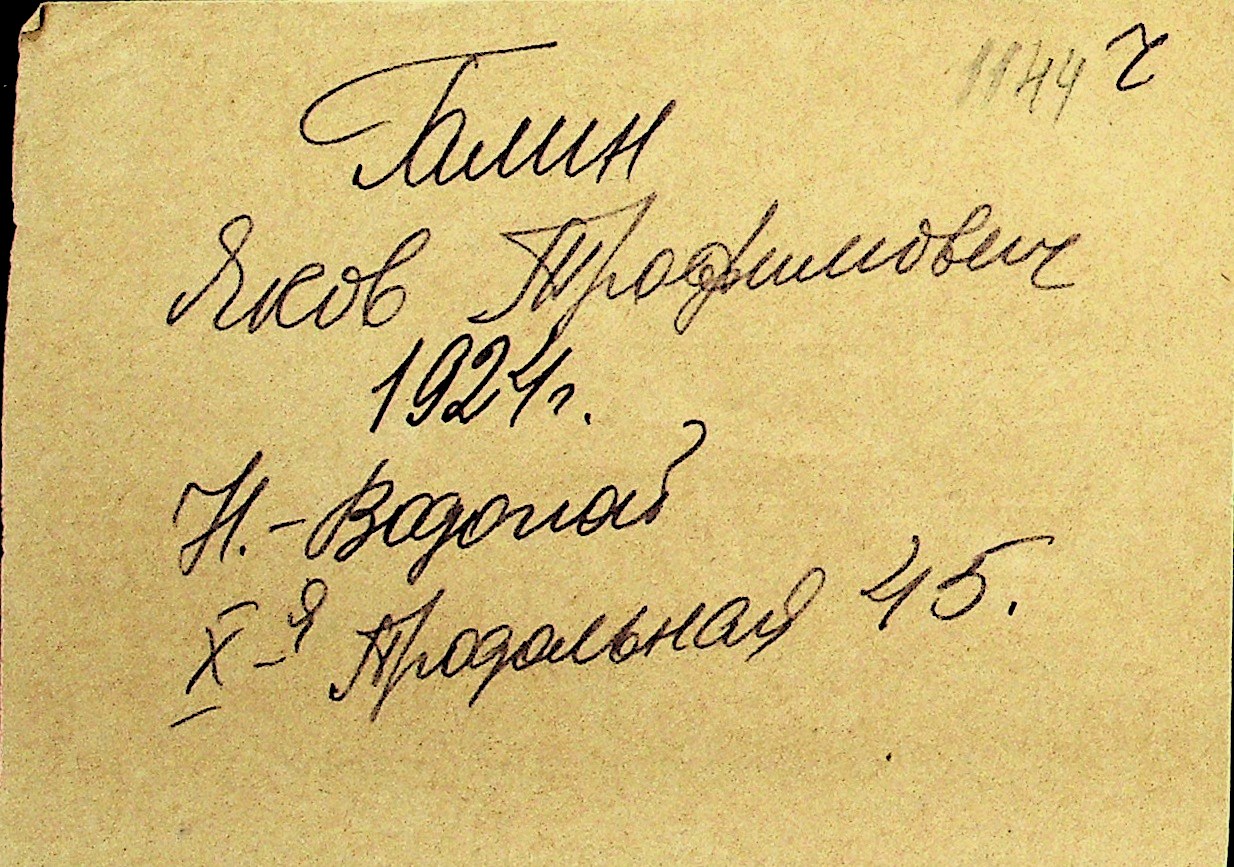 1144 ч
Галин
Яков Трофимович
1924г.
Н.-Водопой
X-я Продольная 45.